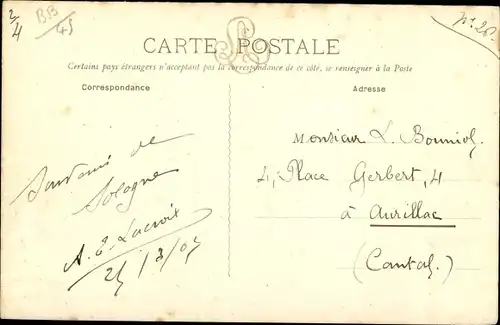 2/4
BB
45
CARTE POSTALE
Certains pays étrangers n'acceptant pas la correspondance de ce côté, se renseigner à la Poste
Correspondance
Adresse
Souvenir de
Sologne
A. E. Lacroix
Monsieur L. Bonniol
4, Place Gerbert, 4
à Aurillac
(Cantal.)